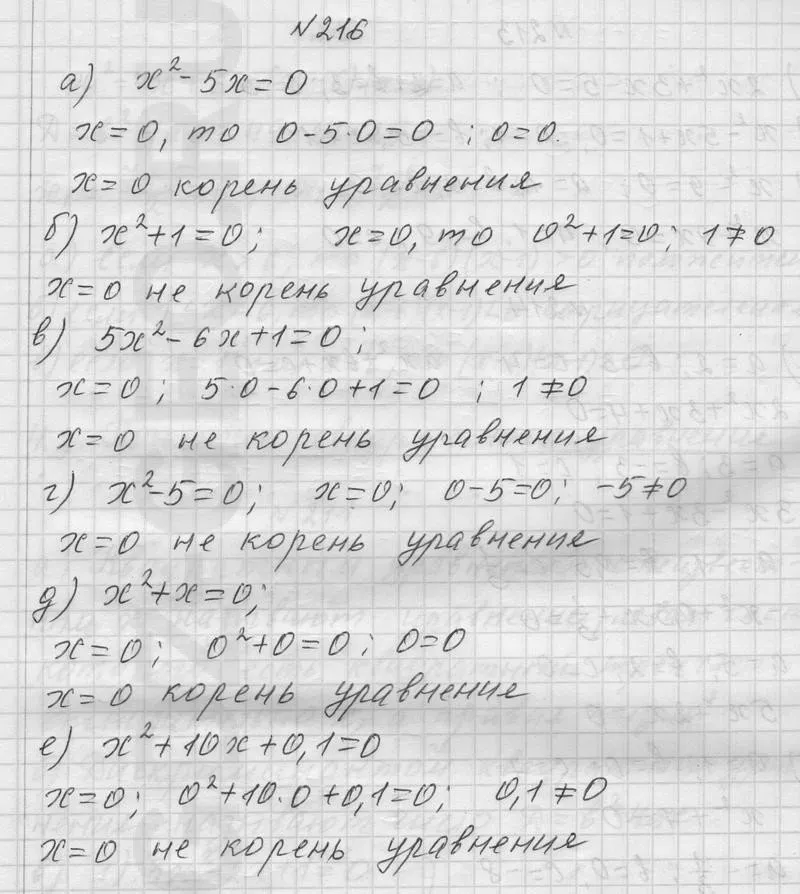 №216
а) x² - 5x = 0
x = 0, то 0 - 5·0 = 0 ; 0 = 0.
x = 0 корень уравнения
б) x² + 1 = 0; x = 0, то 0² + 1 = 0; 1 ≠ 0
x = 0 не корень уравнения
в) 5x² - 6x + 1 = 0 ;
x = 0 ; 5·0 - 6·0 + 1 = 0 ; 1 ≠ 0
x = 0 не корень уравнения
г) x² - 5 = 0; x = 0; 0 - 5 = 0; -5 ≠ 0
x = 0 не корень уравнения
д) x² + x = 0;
x = 0; 0² + 0 = 0; 0 = 0
x = 0 корень уравнения
е) x² + 10x + 0,1 = 0
x = 0; 0² + 10·0 + 0,1 = 0; 0,1 ≠ 0
x = 0 не корень уравнения